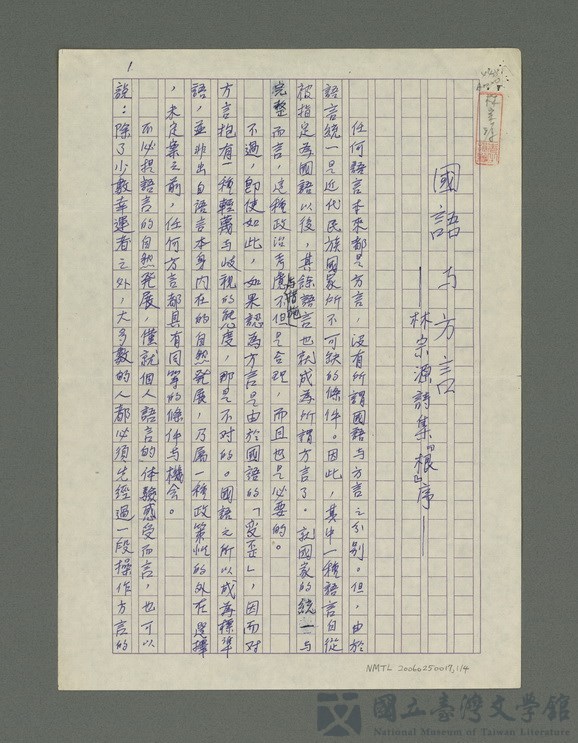 國語与方言
——林宗源詩集『根』序——
任何語言本來都是方言，沒有所謂國語与方言之分別。但，由於
語言統一是近代民族國家所不可缺的條件。因此，其中一種語言自從
被指定為國語以後，其餘語言也就成為所謂方言了。就國家的統一与
完整而言，這種政治考慮与措施不但是合理，而且也是必要的。
不過，即使如此，如果認為方言是由於國語的「受歪」，因而对
方言抱有一種輕蔑与歧視的態度，那是不对的。國語之所以成為標準
語，並非出自語言本身內在的自然発展，乃屬一種政策性的外在選擇
，未定案之前，任何方言都具有同等的條件与機会。
而必提語言的自然発展，僅就個人語言的体驗感受而言，也可以
說：除了少數幸運者之外，大多數的人都必須先經過一段操作方言的
1
NMTL 20060250017, 1/4
國立臺灣文學館
National Museum of Taiwan Literature